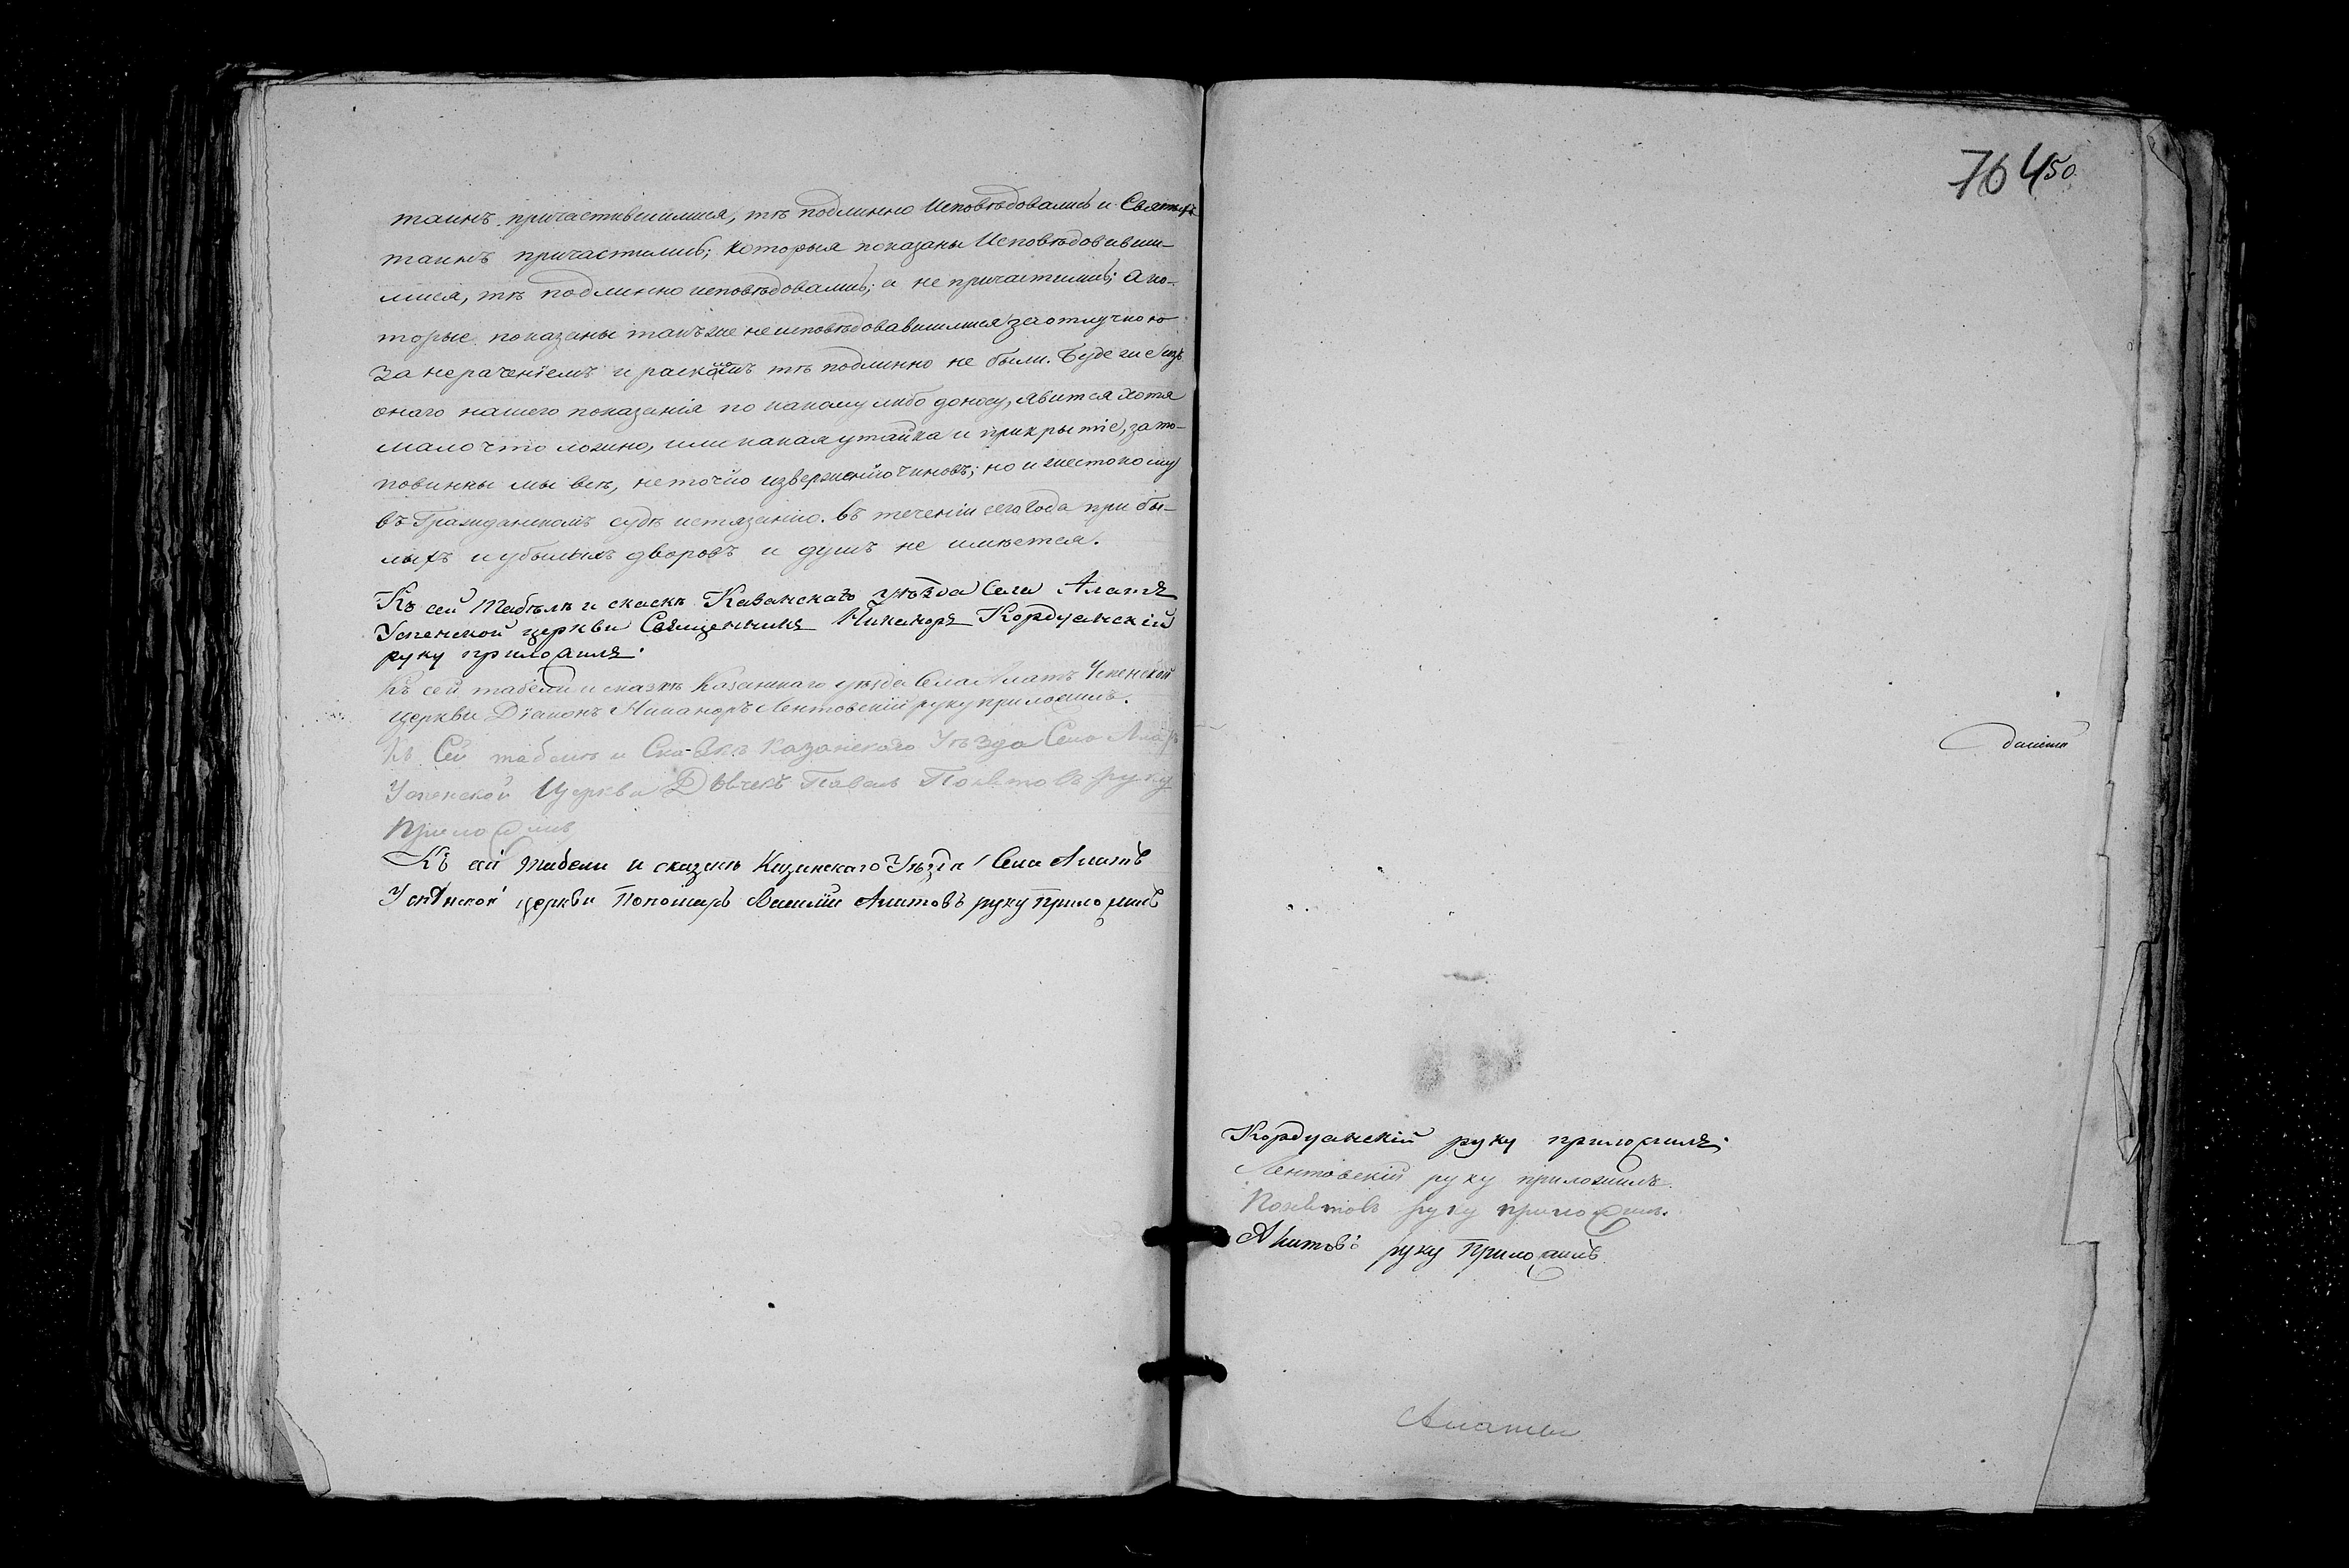 таинъ причастившимися, тѣ подлинно Исповѣдовались и Святыхъ
таинъ причастились; которыя показаны Исповѣдовавши-
мися, тѣ подлинно исповѣдовались; а не причастились; а ко-
торые показаны такъ же не исповѣдовавшимися за отлучкою
за нераченіемъ и раскол тѣ подлинно не были. Буде же изъ
онаго нашего показанія по какому либо доносу, явится хотя
мало что ложно, или какая утайка и прикрытіе, за то
повинны мы всѣ, не точію изверженію чиновъ; но и жестокому
въ Гражданскомъ судѣ истязанію. въ теченіи сего Года прибы-
лыхъ и убылыхъ дворовъ и душъ не имѣется.
Къ сей Табѣлѣ и скаскѣ Казанскаго уѣзда Села Алатъ
Успенской церкви Священникъ Никаноръ Кордуанскій
руку приложилъ.
Къ сей табели и сказкѣ Казанскаго уѣзда Села Алатъ Успенской
церкви Діаконъ Никаноръ Лентовскій руку приложилъ.
Къ Сей табели и Сказкѣ Казанскаго Уѣзда Села Алатъ
Успенской Церкви Дьячекъ Павелъ руку
приложилъ
Къ сей табели и сказкѣ Казанскаго Уѣзда Села Алатъ
Успенской церкви Пономарь Василій Акитовъ руку приложилъ
76 450
Кордуанскій руку приложилъ.
Лентовскій руку приложилъ.
руку приложилъ.
Акитовъ руку приложилъ
Алаты